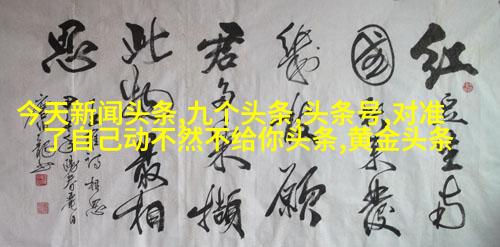 今天新闻头条,九个头条,头条号,对准
了自己动不然不给你头条,黄金头条
红豆生南
國春来發
幾枝願
君多采撷
此物最相
思